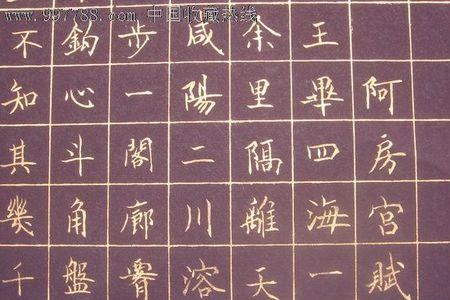 www.997788.com 中国收藏热线
阿房宮賦
王畢四海一
余里隔離天
咸陽二川溶
步一閣廊
鈎心斗角盤
不知其幾千